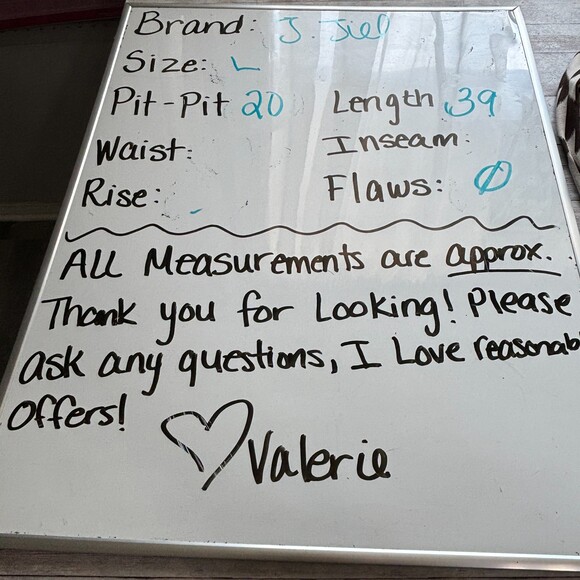 Brand: J. Jiel
Size: L
Pit-Pit 20 Length 39
Waist: Inseam:
Rise: - Flaws: Ø
All Measurements are approx.
Thank you for Looking! Please
ask any questions, I Love reasonab
Offers!
♡Valerie